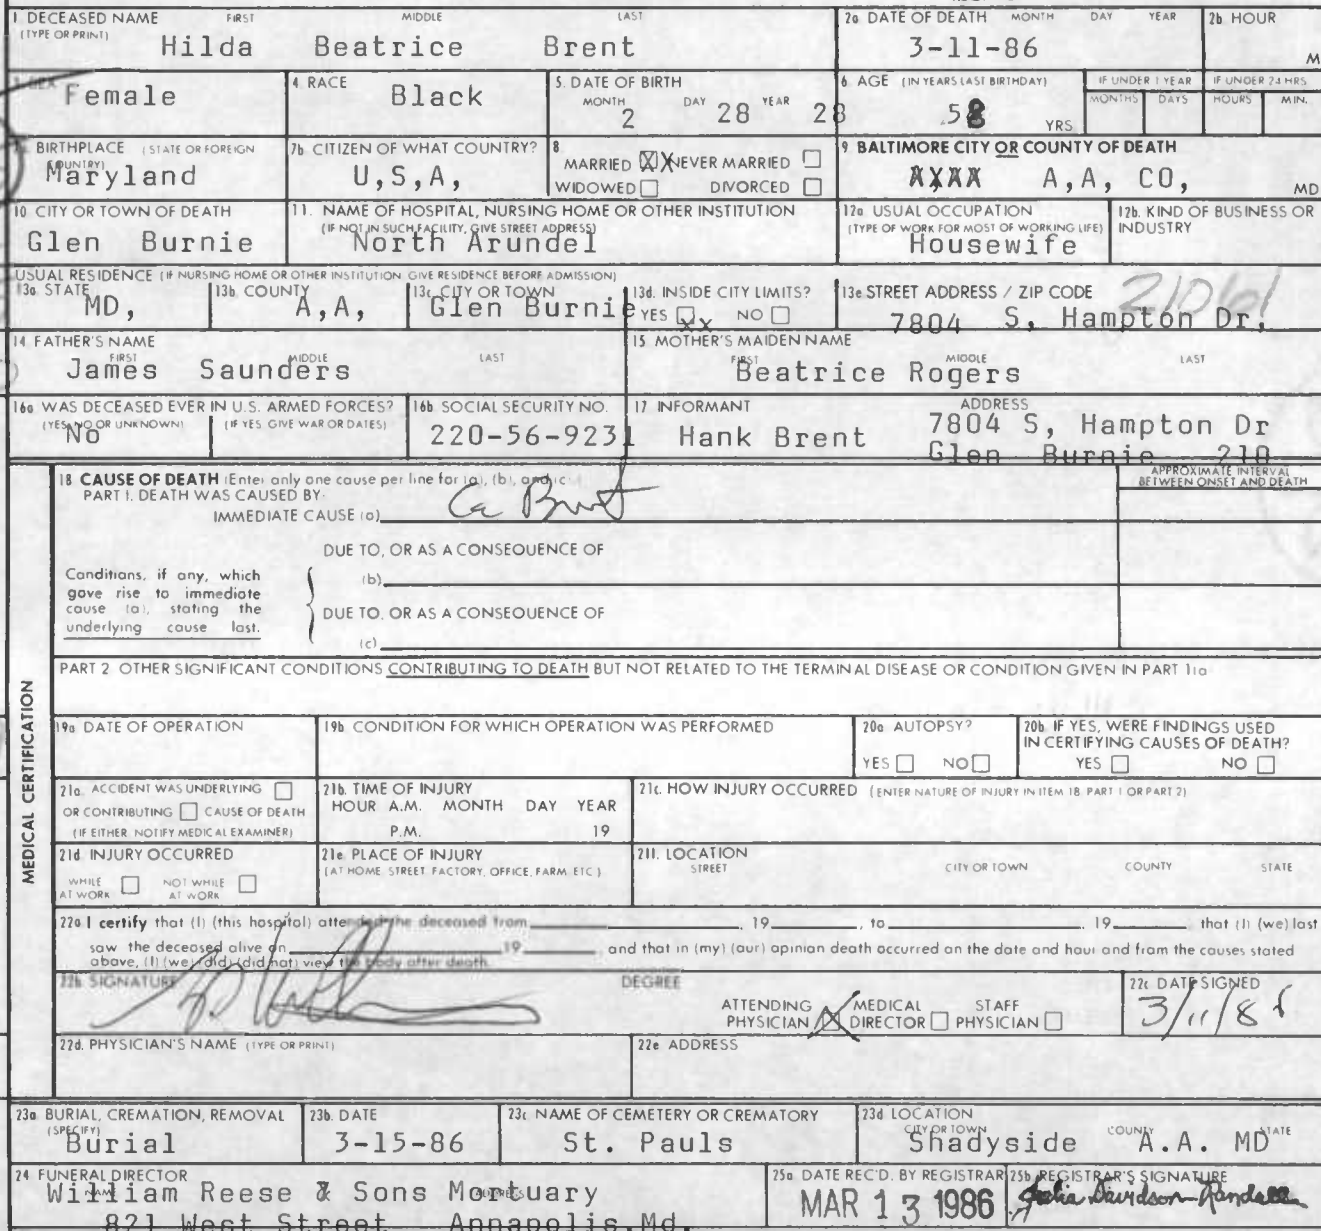 1 DECEASED NAME FIRST MIDDLE LAST 2a DATE OF DEATH MONTH DAY YEAR 2b HOUR
(TYPE OR PRINT) Hilda Beatrice Brent 3-11-86 M
SEX Female 4. RACE Black 5. DATE OF BIRTH MONTH 2 DAY 28 YEAR 28 6. AGE (IN YEARS LAST BIRTHDAY) 58 YRS IF UNDER 1 YEAR MONTHS DAYS IF UNDER 24 HRS HOURS MIN.
BIRTHPLACE (STATE OR FOREIGN COUNTRY) Maryland 7b CITIZEN OF WHAT COUNTRY? U,S,A, 8. MARRIED X X NEVER MARRIED WIDOWED DIVORCED 9 BALTIMORE CITY OR COUNTY OF DEATH A,A, CO, MD
10 CITY OR TOWN OF DEATH Glen Burnie 11. NAME OF HOSPITAL, NURSING HOME OR OTHER INSTITUTION (IF NOT IN SUCH FACILITY, GIVE STREET ADDRESS) North Arundel 12a. USUAL OCCUPATION (TYPE OF WORK FOR MOST OF WORKING LIFE) Housewife 12b. KIND OF BUSINESS OR INDUSTRY
USUAL RESIDENCE (IF NURSING HOME OR OTHER INSTITUTION GIVE RESIDENCE BEFORE ADMISSION)
13a STATE MD, 13b COUNTY A,A, 13c CITY OR TOWN Glen Burnie 13d. INSIDE CITY LIMITS? YES xx NO 13e STREET ADDRESS / ZIP CODE 21061 7804 S, Hampton Dr,
14 FATHER'S NAME FIRST MIDDLE LAST James Saunders 15 MOTHER'S MAIDEN NAME FIRST MIDDLE LAST Beatrice Rogers
16a WAS DECEASED EVER IN U.S. ARMED FORCES? (YES, NO OR UNKNOWN) No (IF YES GIVE WAR OR DATES) 16b SOCIAL SECURITY NO. 220-56-9231 17 INFORMANT Hank Brent ADDRESS 7804 S, Hampton Dr
Glen Burnie 210
18 CAUSE OF DEATH (Enter only one cause per line for (a), (b), and (c) APPROXIMATE INTERVAL BETWEEN ONSET AND DEATH
PART I. DEATH WAS CAUSED BY:
IMMEDIATE CAUSE (a) Ca
DUE TO, OR AS A CONSEQUENCE OF
Conditions, if any, which gave rise to immediate cause (a), stating the underlying cause last.
(b)
DUE TO, OR AS A CONSEQUENCE OF
(c)
PART 2 OTHER SIGNIFICANT CONDITIONS CONTRIBUTING TO DEATH BUT NOT RELATED TO THE TERMINAL DISEASE OR CONDITION GIVEN IN PART 1(a
MEDICAL CERTIFICATION
19a DATE OF OPERATION 19b CONDITION FOR WHICH OPERATION WAS PERFORMED 20a AUTOPSY? YES NO 20b IF YES, WERE FINDINGS USED IN CERTIFYING CAUSES OF DEATH? YES NO
21a ACCIDENT WAS UNDERLYING OR CONTRIBUTING CAUSE OF DEATH (IF EITHER NOTIFY MEDICAL EXAMINER) 21b. TIME OF INJURY HOUR A.M. MONTH DAY YEAR P.M. 19 21c. HOW INJURY OCCURRED (ENTER NATURE OF INJURY IN ITEM 18 PART 1 OR PART 2)
21d INJURY OCCURRED WHILE AT WORK NOT WHILE AT WORK 21e PLACE OF INJURY (AT HOME STREET FACTORY, OFFICE, FARM ETC) 21f. LOCATION STREET CITY OR TOWN COUNTY STATE
22a I certify that (I) (this hospital) attended the deceased from 19 , to 19 that (I) (we) last
saw the deceased alive on 19 , and that in (my) (our) opinion death occurred on the date and hour and from the causes stated
above, (I) (we) (did) (did not) view the body after death.
22b SIGNATURE DEGREE ATTENDING PHYSICIAN X MEDICAL DIRECTOR STAFF PHYSICIAN 22c DATE SIGNED 3/11/86
22d. PHYSICIAN'S NAME (TYPE OR PRINT) 22e ADDRESS
23a BURIAL, CREMATION, REMOVAL (SPECIFY) Burial 23b. DATE 3-15-86 23c NAME OF CEMETERY OR CREMATORY St. Pauls 23d LOCATION CITY OR TOWN Shadyside COUNTY A.A. STATE MD
24 FUNERAL DIRECTOR NAME William Reese & Sons Mortuary ADDRESS 25a DATE REC'D. BY REGISTRAR MAR 13 1986 25b REGISTRAR'S SIGNATURE Julia Davidson-Randall
821 West Street Annapolis, Md.